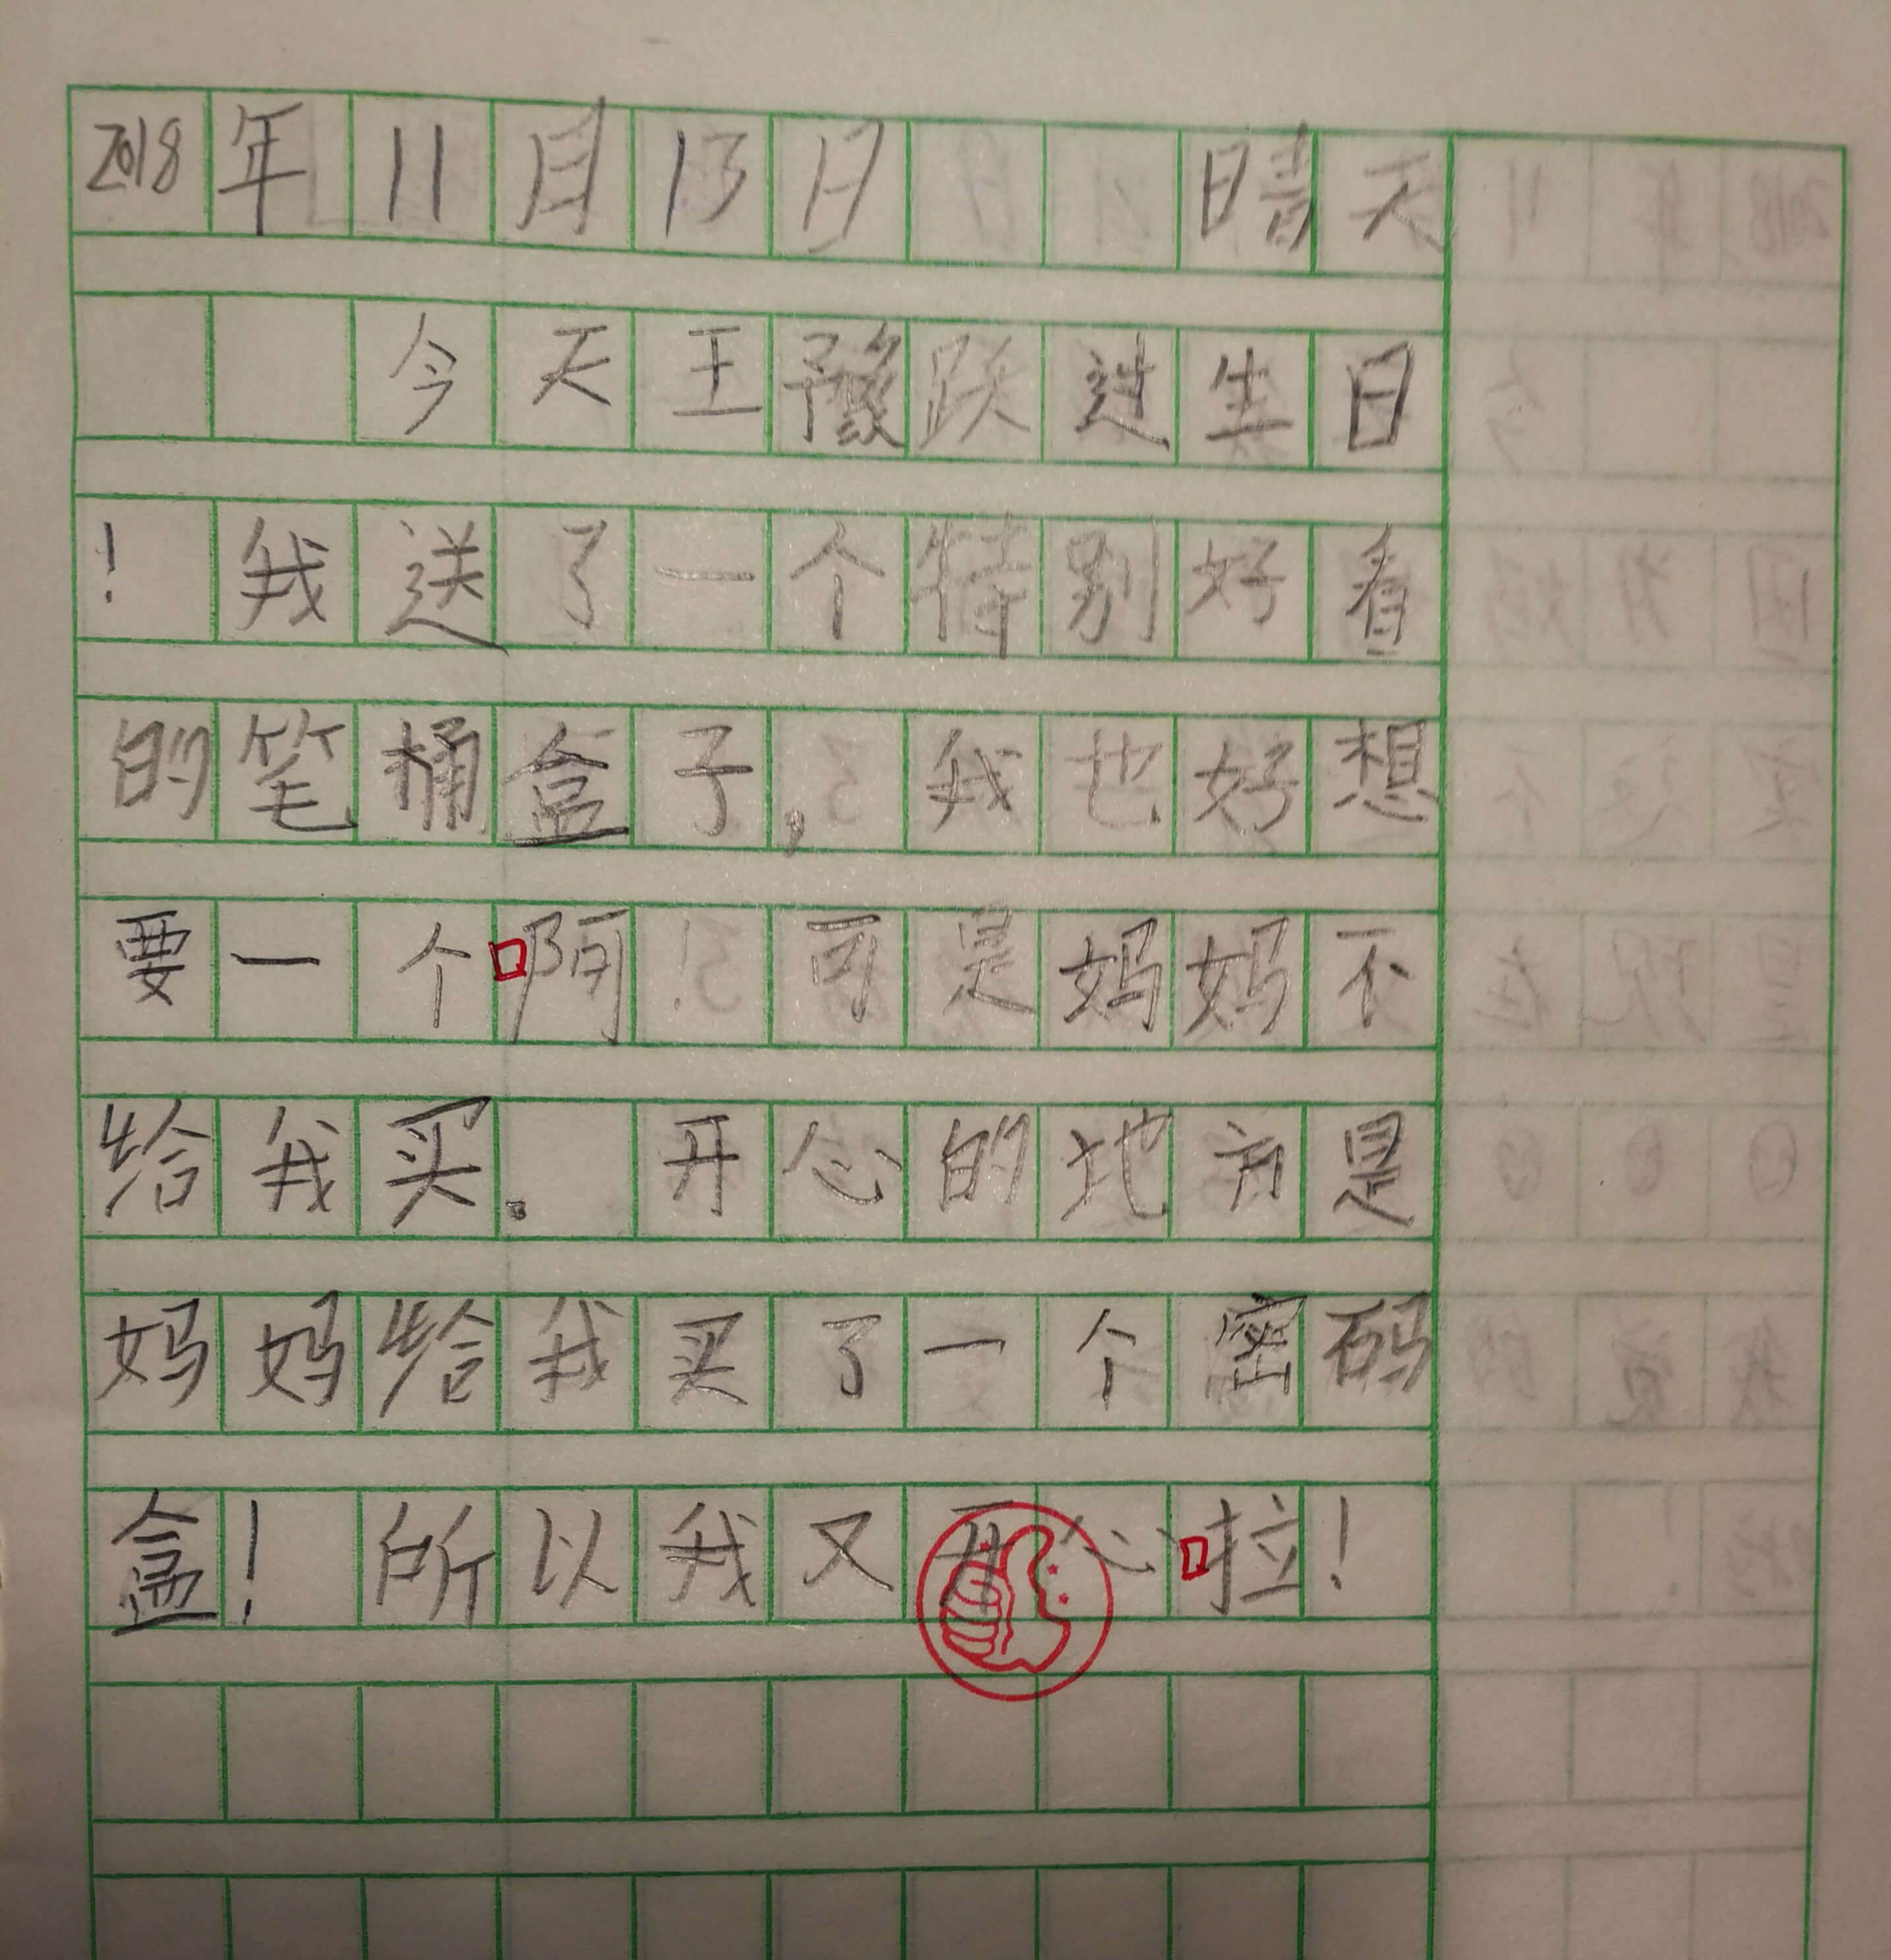 2018年11月13日 晴天
今天王豫跃过生日
！我送了一个特别好看
的笔桶盒子，我也好想
要一个啊！可是妈妈不
给我买。开心的地方是
妈妈给我买了一个密码
盒！所以我又开心啦！